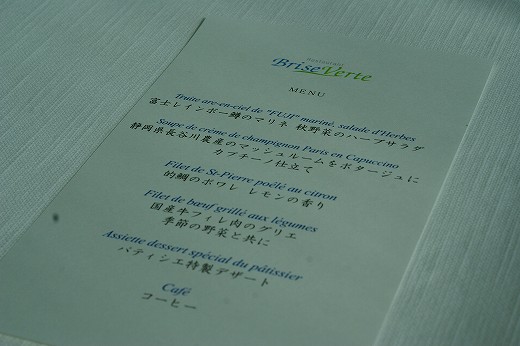 RESTAURANT
Brise Verte
MENU
Truite arc-en-ciel de "FUJI" mariné, salade d'Herbes
富士レインボー鱒のマリネ 秋野菜のハーブサラダ
Soupe de crème de champignon Paris en Capuccino
静岡県長谷川農産のマッシュルームをポタージュに
カプチーノ仕立て
Filet de St-Pierre poêlé au citron
的鯛のポワレ レモンの香り
Filet de bœuf grillé aux légumes
国産牛フィレ肉のグリエ
季節の野菜と共に
Assiette dessert spécial du pâtissier
パティシエ特製デザート
Café
コーヒー